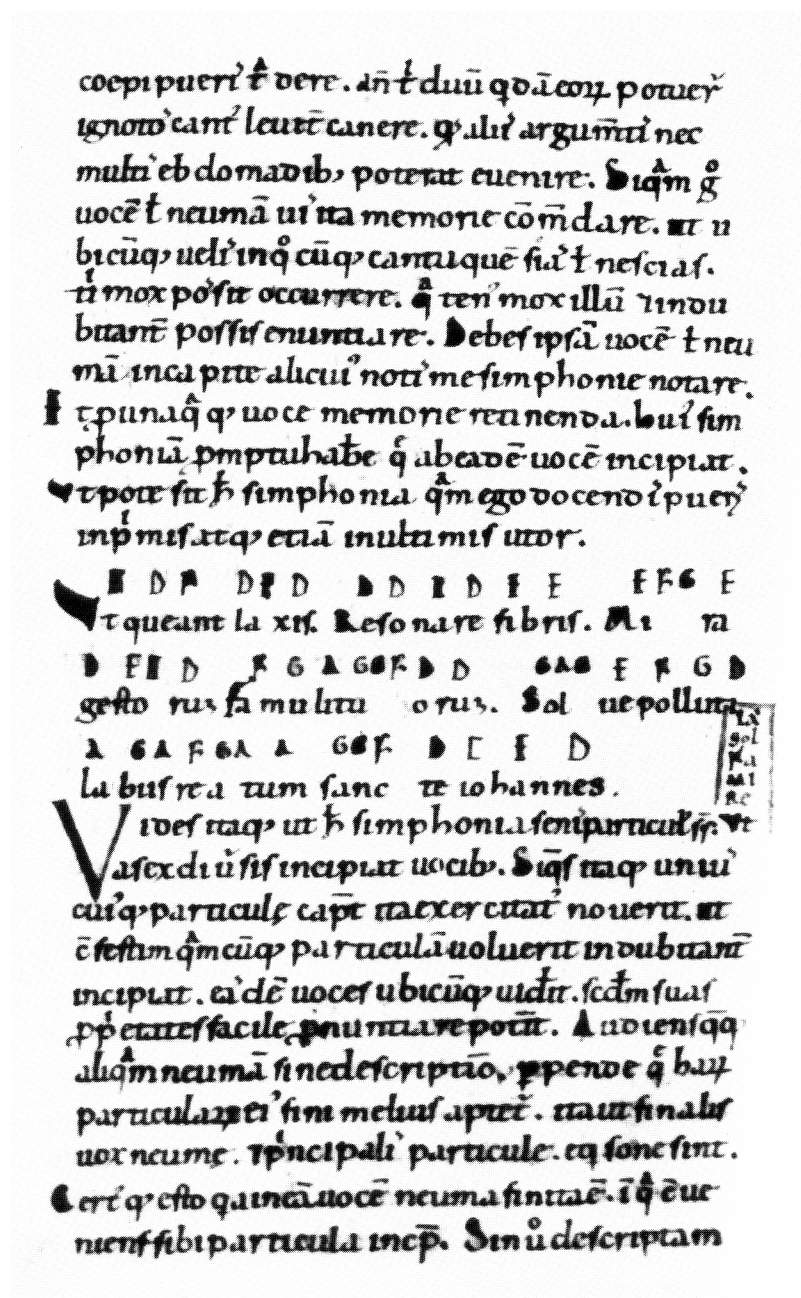 coepi pueriʼ tͣdere. an̄ tⁱduū qdā eoꝝ potuer̄
ignotoˢ cantˀ leuit̄ canere. qđ aliiˢ argum̄tiˢ nec
multiˢ ebdomadibꝫ poterat euenire. Siqͣm gͦ
uocē ł neumā uiˢ ita memorie com̄dare. ut u
bicūqꝫ ueliˢ inqͦcūqꝫ cantu quē sciaˢ ł nescias.
tⁱ mox possit occurrere. qͣtenˀ mox illū indu
bitant̄ possis enuntiare. Debes ipsā uocē ł neu
mā in capite alicuiˀ notiˢ me simphonie notare.
Et p una qͣqꝫ uoce memorie retinenda. huiˀ sim
phoniā pmptu habere qͤ ab eadē uocē incipiat.
Vtpote sit ħ simphonia qͣm ego docendiˢ pueriˢ
inpⁱmis atqꝫ etiā in ultimis utor.
C D F D E D D D C D E E E F G E
Vt queant laxis. Resonare fibris. Mi ra
D EC D F G A GEF D D GAG E F G D
gesto rum famulitu orum. Solue polluta
A G A F GA A GEF D C E D
labus reatum sancte iohannes.
LA
Sol
FA
MI
RE
Vt
Vides itaqꝫ ut ħ simphonia seniˢ particuliˢ ss̄.
a sex diūsis incipiat uocibꝫ. Siqͥs itaqꝫ uniuˢ
cuiˀqꝫ particulę cap̄t ita exercitatˀ nouerit. ut
c̄festim qͣmcūqꝫ particulā uoluerit indubitant̄
incipiat. eaˢdē uoces ubicūqꝫ uidit. scd̄m suas
pp̄etates facile pnuntiare pot̄it. Audiens qq̄
aliqͣm neumā sine descriptiō. ppende qͤ haꝝ
particulaꝝ eiˀ fini meliuˢ aptet̄. ita ut finaliˢ
uox neumę. ⁊pⁱncipaliˢ particule. eqͥsone sint.
Certˀqꝫ esto qa in eā uocē neuma finita ē. ī qͣ c̄ue
niens sibi particula incep̄. Sin ū descriptam